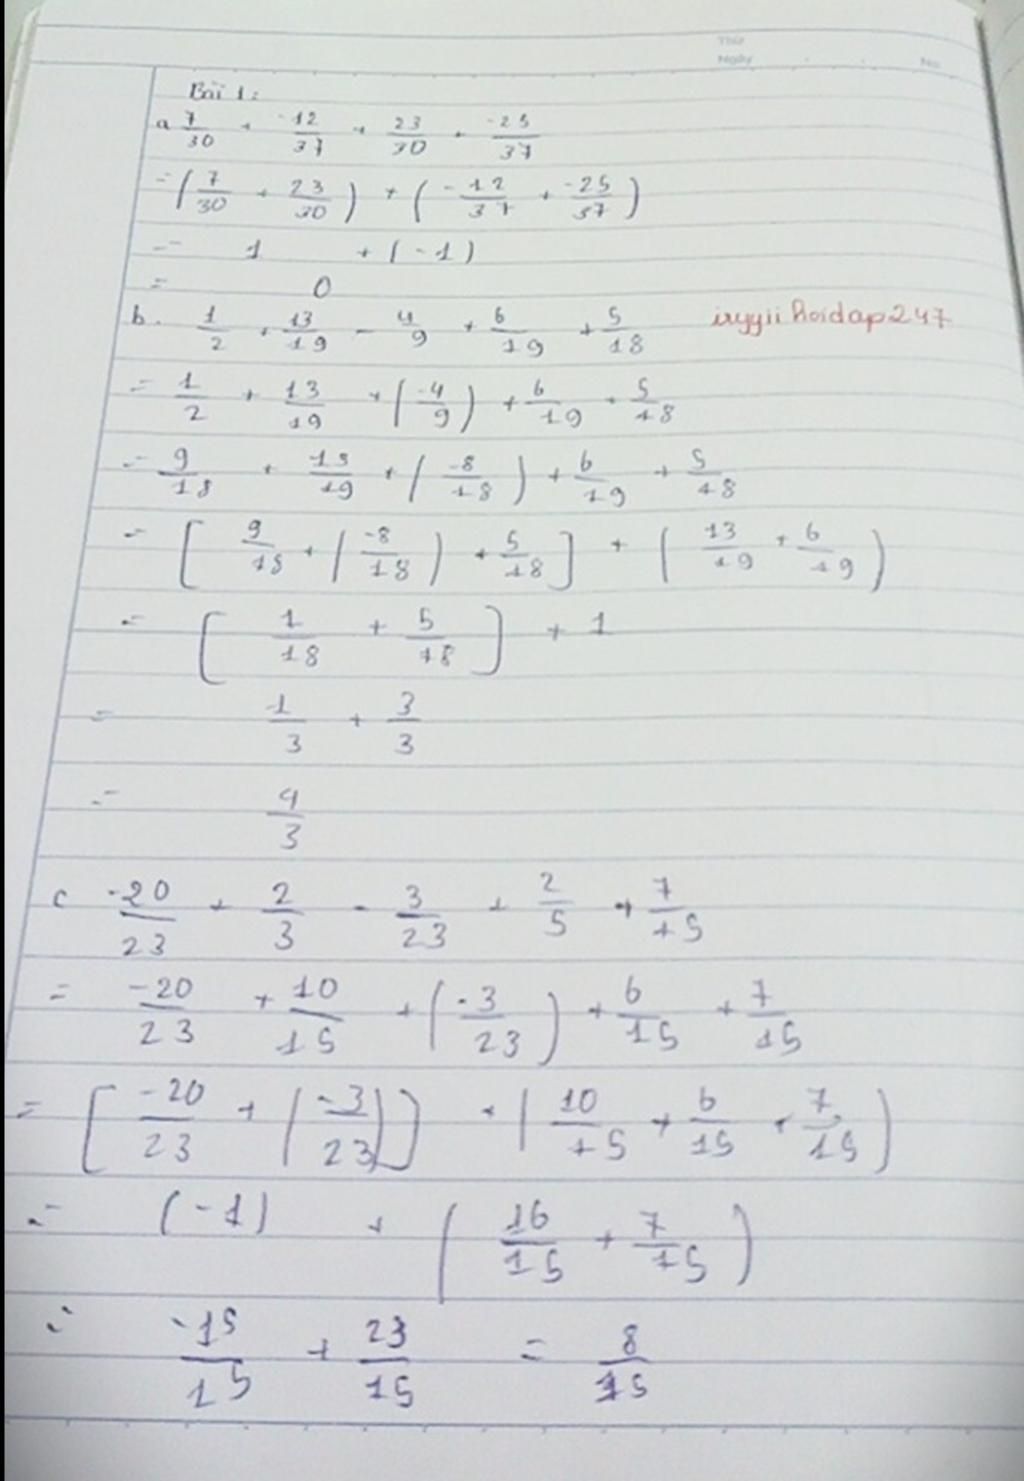 Thứ
Ngày . . No.
Bài 1:
a 7/30 + -12/37 + 23/30 + -25/37
= (7/30 + 23/30) + (-12/37 + -25/37)
= 1 + (-1)
= 0
b. 1/2 + 13/19 - 4/9 + 6/19 + 5/18 iryyii hoidap247
= 1/2 + 13/19 + (-4/9) + 6/19 + 5/18
= 9/18 + 13/19 + (-8/18) + 6/19 + 5/18
= [9/18 + (-8/18) + 5/18] + (13/19 + 6/19)
= [1/18 + 5/18] + 1
= 1/3 + 3/3
= 4/3
c -20/23 + 2/3 - 3/23 + 2/5 + 7/15
= -20/23 + 10/15 + (-3/23) + 6/15 + 7/15
= [-20/23 + (-3/23)] + (10/15 + 6/15 + 7/15)
= (-1) + (16/15 + 7/15)
= -15/15 + 23/15 = 8/15